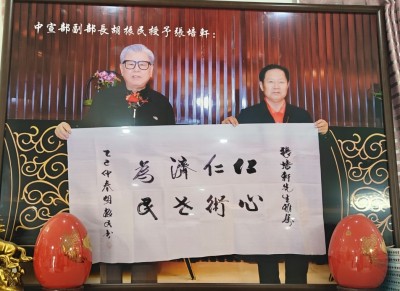 中宣部副部長胡振民授予張培軒：
張培軒先生雅
仁心
仁術
濟世
為民
乙巳仲春胡振民書